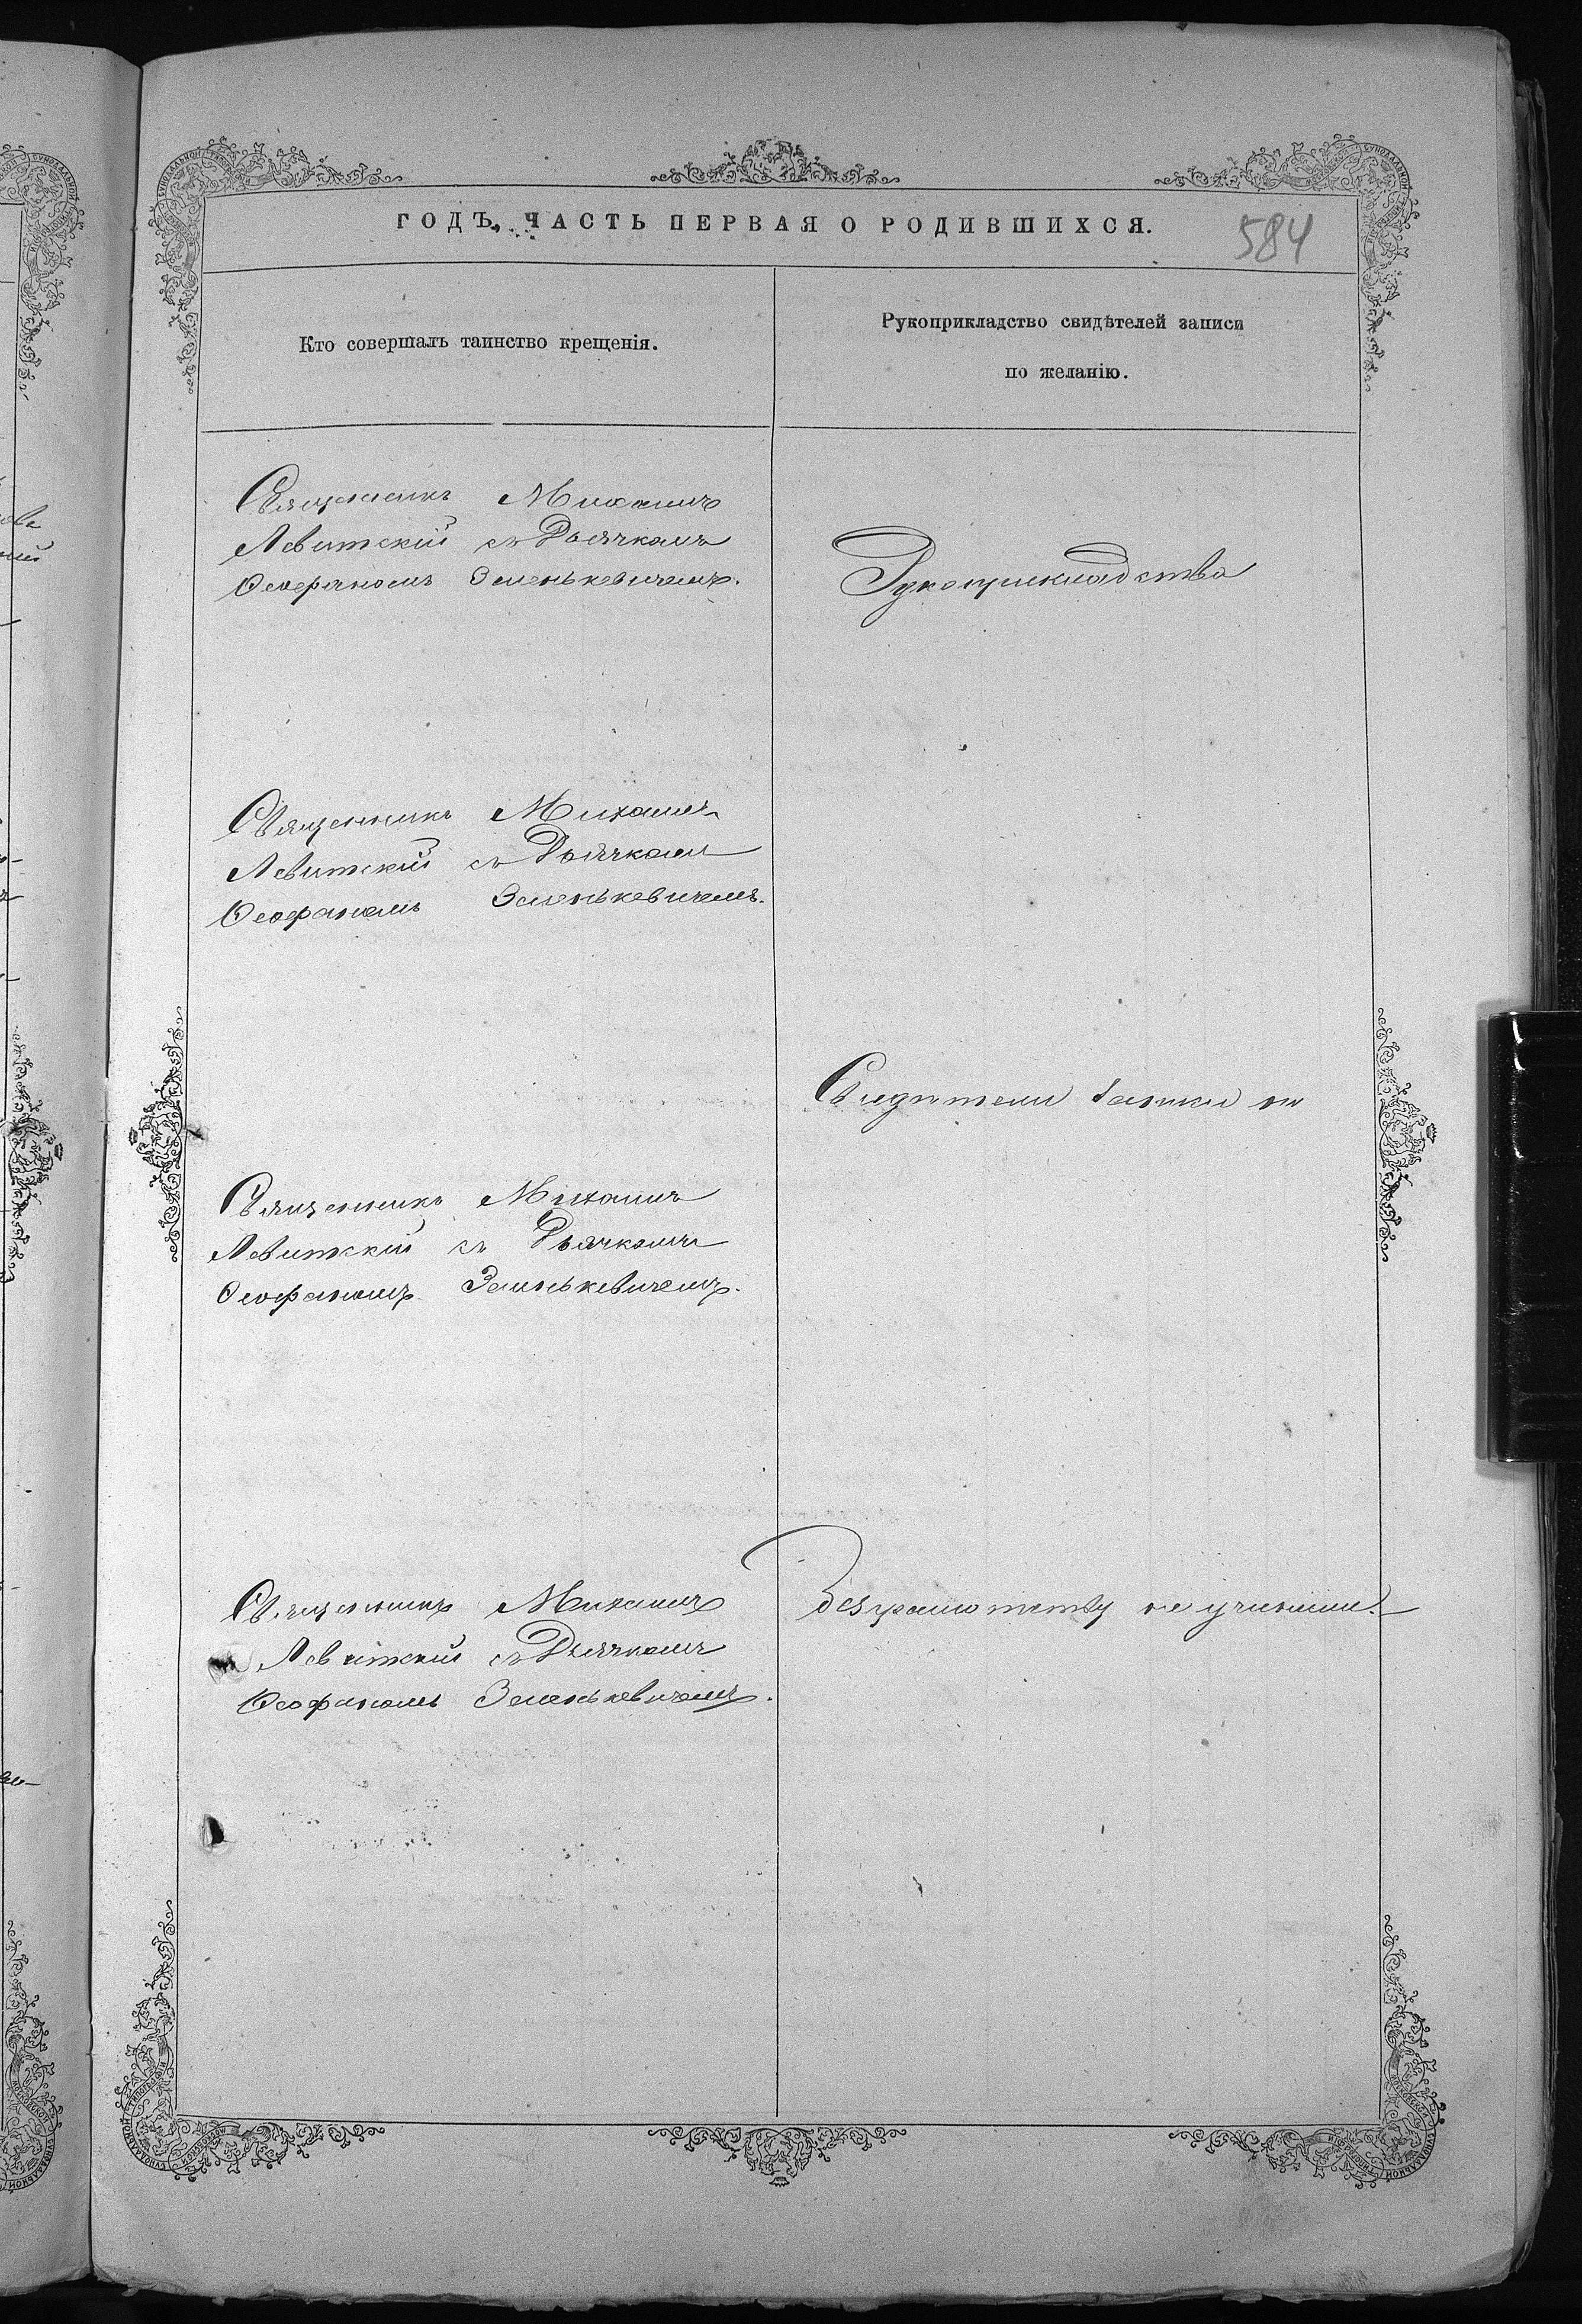 ГОДЪ, ЧАСТЬ ПЕРВАЯ О РОДИВШИХСЯ.
584
Кто совершалъ таинство крещенія.
Рукоприкладство свидѣтелей записи
по желанію.
Священникъ Михаилъ
Левитскій съ Дьячкомъ
Ѳеофаномъ Зеленькевичемъ.
Рукоприкладства
Священникъ Михаилъ
Левитскій съ Дьячкомъ
Ѳеофаномъ Зеленькевичемъ.
Свидѣтели записи по
Священникъ Михаилъ
Левитскій съ Дьячкомъ
Ѳеофаномъ Зеленькевичемъ.
Священникъ Михаилъ
Левитскій съ Дьячкомъ
Ѳеофаномъ Зеленькевичемъ.
безграмотству не учинили.